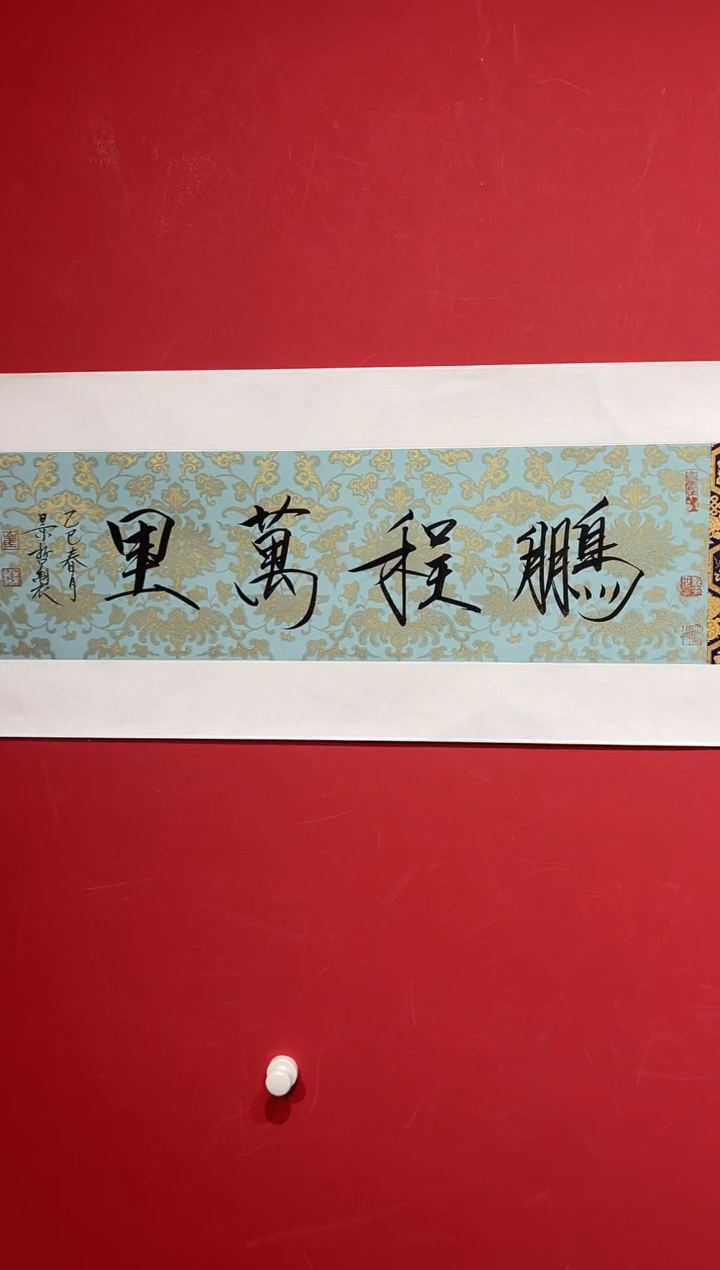 鵬程萬里
乙巳春月
景哲製